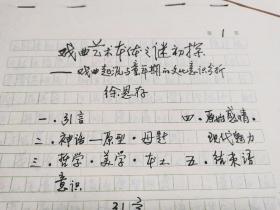 第 1 页
戏曲艺术本体之谜初探
——戏曲起源与童年期的文化意识分析
徐恩存
一. 引言
四. 原始感情·
二. 神话—原型·母题
现代魅力
三. 哲学·美学·本土
五. 结束语
意识